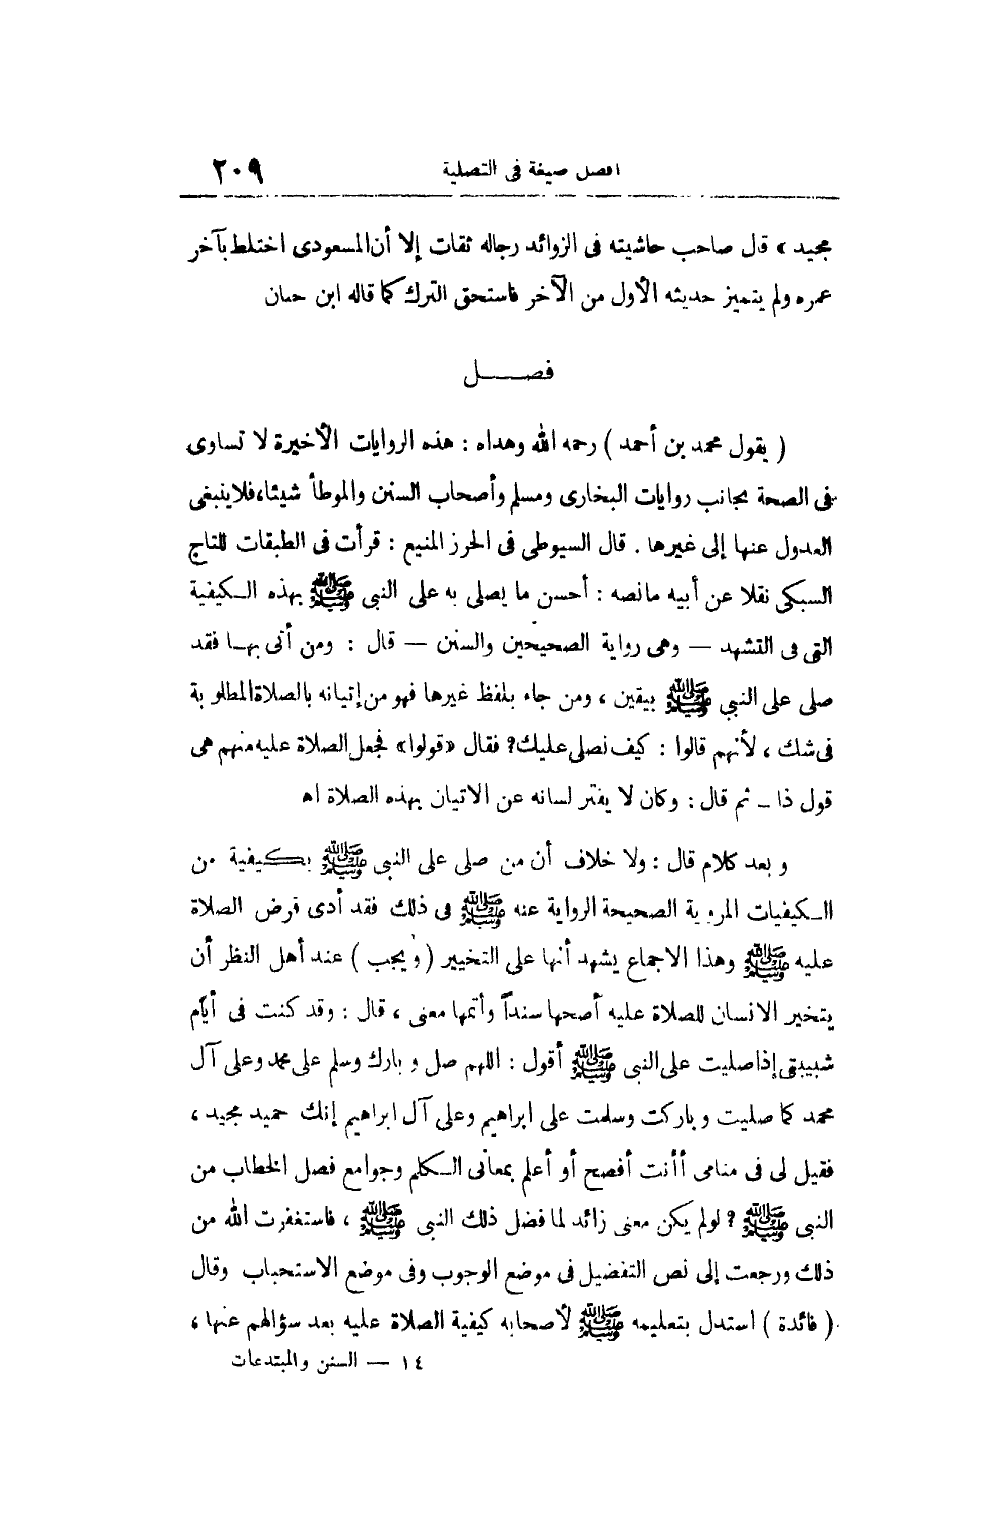 افضل صيغة فى التصلية ٢٠٩
مجيد » قال صاحب حاشيته فى الزوائد رجاله ثقات إلا أن المسعودى اختلط بآخر
عمره ولم يتميز حديثه الأول من الآخر فاستحق الترك كما قاله ابن حبان
فصل
( يقول محمد بن أحمد ) رحمه الله وهداه : هذه الروايات الأخيرة لا تساوى
فى الصحة بجانب روايات البخارى ومسلم وأصحاب السنن والموطأ شيئا، فلا ينبغى
العدول عنها إلى غيرها . قال السيوطى فى الحرز المنيع : قرأت فى الطبقات للتاج
السبكى نقلا عن أبيه مانصه : أحسن ما يصلى به على النبى ﷺ بهذه الكيفية
التى فى التشهد — وهى رواية الصحيحين والسنن — قال : ومن أتى بها فقد
صلى على النبي ﷺ بيقين ، ومن جاء بلفظ غيرها فهو من إتيانه بالصلاة المطلوبة
فى شك ، لأنهم قالوا : كيف نصلى عليك؟ فقال «قولوا» فجعل الصلاة عليه منهم هى
قول ذا ــ ثم قال : وكان لا يفتر لسانه عن الاتيان بهذه الصلاة اه
وبعد كلام قال : ولا خلاف أن من صلى على النبى ﷺ بكيفية من
الكيفيات المروية الصحيحة الرواية عنه ﷺ فى ذلك فقد أدى فرض الصلاة
عليه ﷺ وهذا الاجماع يشهد أنها على التخيير ( ويجب ) عند أهل النظر أن
يتخير الانسان للصلاة عليه أصحها سنداً وأتمها معنى ، قال : وقد كنت فى أيام
شبيبتى إذا صليت على النبى ﷺ أقول : اللهم صل وبارك وسلم على محمد وعلى آل
محمد كما صليت وباركت وسلمت على ابراهيم وعلى آل ابراهيم إنك حميد مجيد ،
فقيل لى فى منامى أأنت أفصح أو أعلم بمعانى الكلم وجوامع فصل الخطاب من
النبى ﷺ ؟ لولم يكن معنى زائد لما فضل ذلك النبى ﷺ ، فاستغفرت الله من
ذلك ورجعت إلى نص التفضيل فى موضع الوجوب وفى موضع الاستحباب وقال
( فائدة ) استدل بتعليمه ﷺ لأصحابه كيفية الصلاة عليه بعد سؤالهم عنها ،
١٤ — السنن والمبتدعات